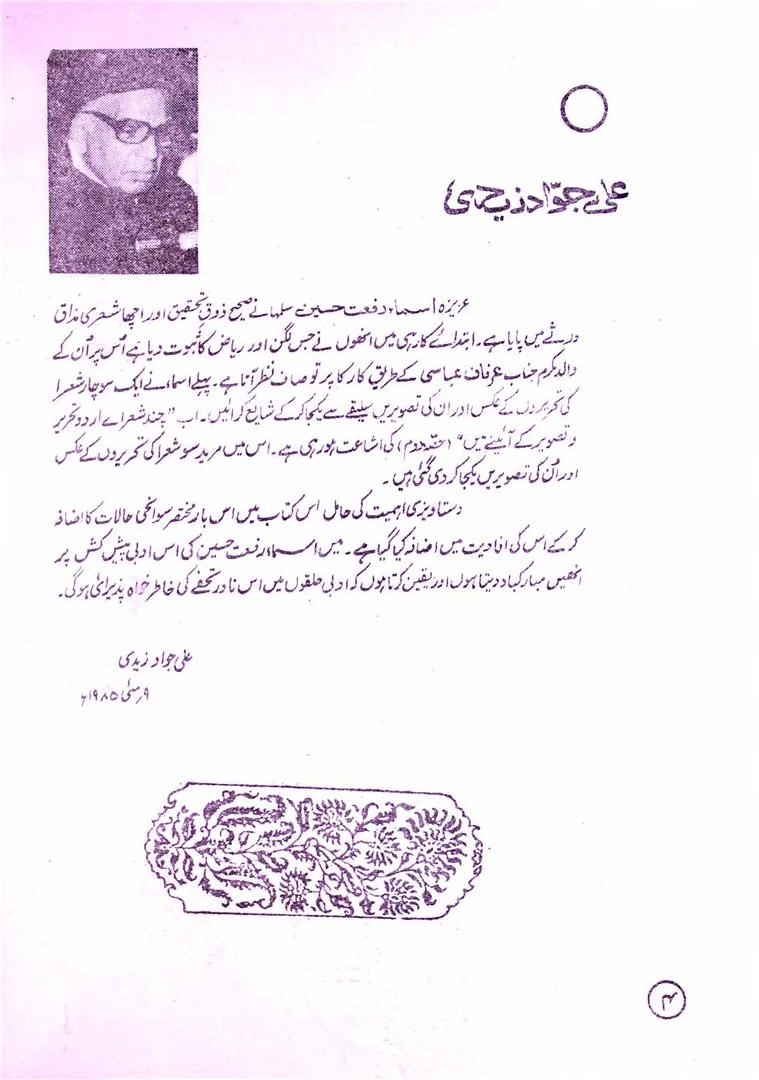 علی جوّاد زیدی
عزیزہ اسماء رفعت حسین سلمہا نے صحیح ذوقِ تحقیق اور اچھا شعری مذاق
ورثے میں پایا ہے۔ ابتدائے کار ہی میں انھوں نے جس لگن اور ریاض کا ثبوت دیا ہے اُس پر اُن کے
والد مکرم جناب عرفان عباسی کے طریقِ کار کا پرتو صاف نظر آتا ہے۔ پہلے اسماء نے ایک سو چار شعرا
کی تحریروں کے عکس اور ان کی تصویریں سلیقے سے یکجا کر کے شایع کرائیں۔ اب "چند شعراے اردو تحریر
و تصویر کے آئینے میں" (حصّہ دوم) کی اشاعت ہو رہی ہے۔ اس میں مزید سو شعرا کی تحریروں کے عکس
اور اُن کی تصویریں یکجا کر دی گئی ہیں۔
دستاویزی اہمیت کی حامل اس کتاب میں اس بار مختصر سوانحی حالات کا اضافہ
کر کے اس کی افادیت میں اضافہ کیا گیا ہے۔ میں اسماء رفعت حسین کی اس ادبی پیش کش پر
انھیں مبارکباد دیتا ہوں اور یقین کرتا ہوں کہ ادبی حلقوں میں اس نادر تحفے کی خاطر خواہ پذیرائی ہو گی۔
علی جواد زیدی
۹ مئی ۱۹۸۵ء
۴